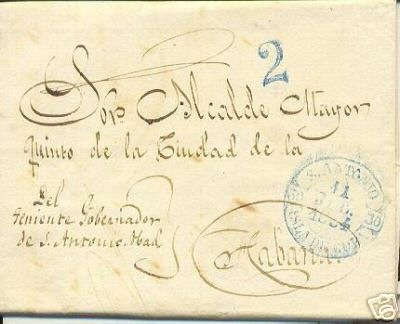 2
Sor. Alcalde Mayor
quinto de la Ciudad de la
Habana.
Del
Teniente Gobernador
de S. Antonio Abad
S. ANTONIO
11
ebY